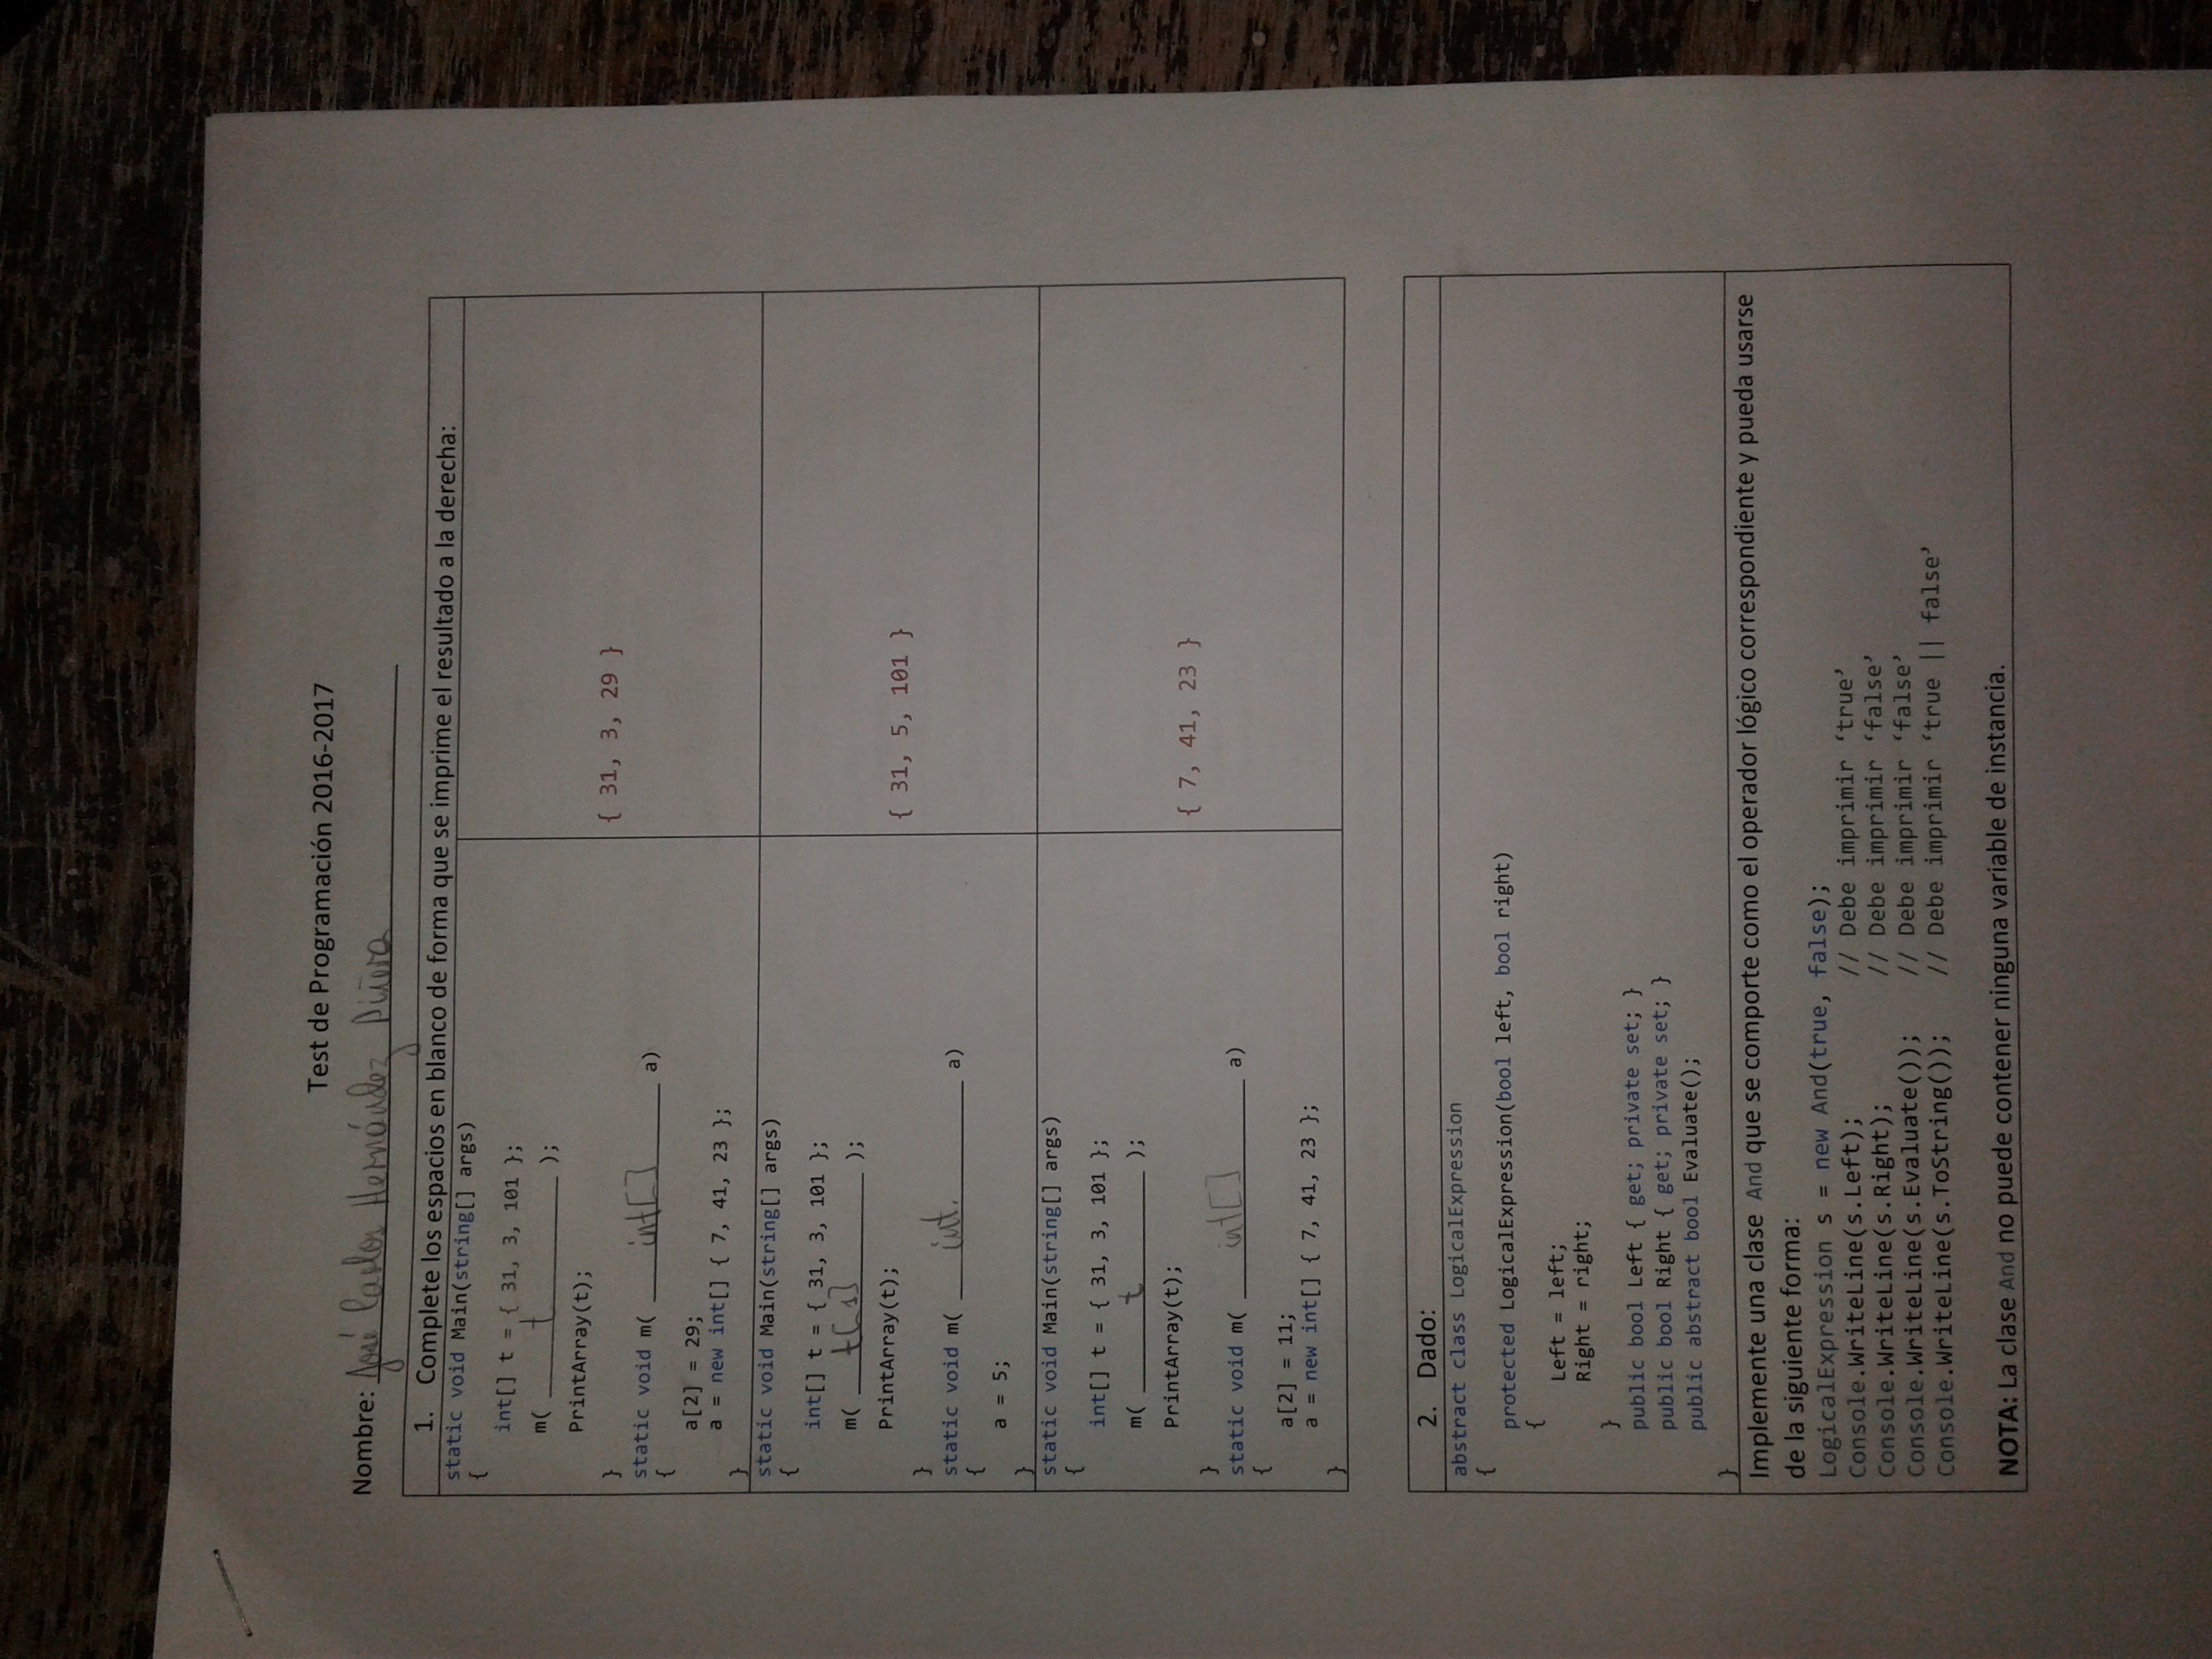 Test de Programación 2016-2017
Nombre: José Carlos Hernández Piñera
1. Complete los espacios en blanco de forma que se imprime el resultado a la derecha:
static void Main(string[] args)
{
int[] t = { 31, 3, 101 };
m( t );
PrintArray(t);
}
{ 31, 3, 29 }
static void m( int[] a)
{
a[2] = 29;
a = new int[] { 7, 41, 23 };
}
static void Main(string[] args)
{
int[] t = { 31, 3, 101 };
m( t[1] );
PrintArray(t);
{ 31, 5, 101 }
}
static void m( int. a)
{
a = 5;
}
static void Main(string[] args)
{
int[] t = { 31, 3, 101 };
m( t );
PrintArray(t);
{ 7, 41, 23 }
}
static void m( int[] a)
{
a[2] = 11;
a = new int[] { 7, 41, 23 };
}
2. Dado:
abstract class LogicalExpression
{
protected LogicalExpression(bool left, bool right)
{
Left = left;
Right = right;
}
public bool Left { get; private set; }
public bool Right { get; private set; }
public abstract bool Evaluate();
}
Implemente una clase And que se comporte como el operador lógico correspondiente y pueda usarse
de la siguiente forma:
LogicalExpression s = new And(true, false);
Console.WriteLine(s.Left); // Debe imprimir ‘true’
Console.WriteLine(s.Right); // Debe imprimir ‘false’
Console.WriteLine(s.Evaluate()); // Debe imprimir ‘false’
Console.WriteLine(s.ToString()); // Debe imprimir ‘true || false’
NOTA: La clase And no puede contener ninguna variable de instancia.